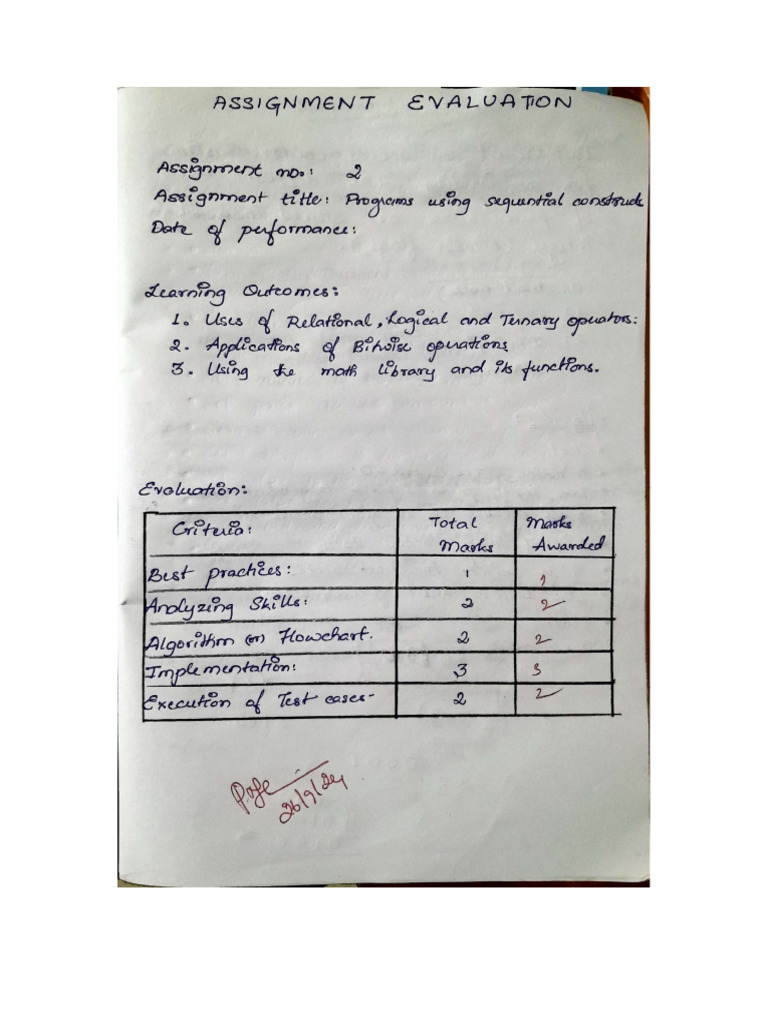 ASSIGNMENT EVALUATION
Assignment no.: 2
Assignment title: Programs using sequential construde
Date of performance:
Learning Outcomes:
1. Uses of Relational, Logical and Ternary operators:
2. Applications of Bitwise operations
3. Using the math library and its functions.
Evaluation:
Criteria: Total Marks Marks Awarded
Best practices: 1 1
Analyzing Skills: 2 2
Algorithm (or) Flowchart. 2 2
Implementation: 3 3
Execution of Test cases- 2 2
26/9/24